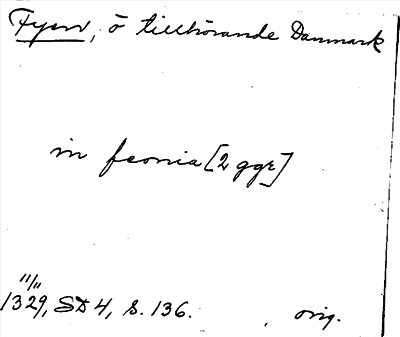 Fyen, ö tillhörande Danmark
in feonia [2 ggr]
11/11
1329, SD 4, s. 136. orig.